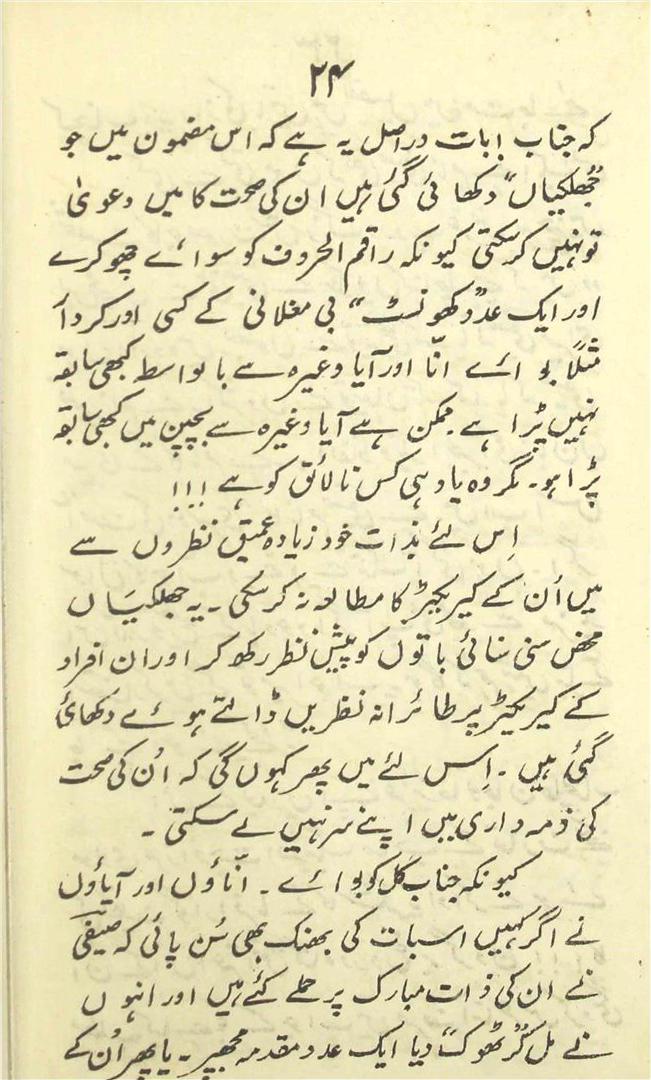 ۲۴
کہ جناب! بات دراصل یہ ہے کہ اس مضمون میں جو
"جھلکیاں" دکھائی گئی ہیں ان کی صحت کا میں دعویٰ
تو نہیں کرسکتی کیونکہ راقم الحروف کو سوائے چھوکرے
اور ایک عدد "کھونسٹ" بی مغلانی کے کسی اور کردار
مثلاً بوائے انّا اور آیا وغیرہ سے بالواسطہ کبھی سابقہ
نہیں پڑا ہے۔ ممکن ہے آیا وغیرہ سے بچپن میں کبھی سابقہ
پڑا ہو۔ مگر وہ یاد ہی کس نالائق کو ہے !!!
اِس لئے بذات خود زیادہ عمیق نظروں سے
میں اُن کے کیریکٹر کا مطالعہ نہ کرسکی۔ یہ جھلکیاں
محض سنی سنائی باتوں کو پیش نظر رکھ کر اور ان افراد
کے کیریکٹر پر طائرانہ نظریں ڈالتے ہوئے دکھائی
گئی ہیں۔ اِس لئے میں پھر کہوں گی کہ اُن کی صحت
کی ذمہ داری میں اپنے سر نہیں لے سکتی۔
کیونکہ جناب کل کو بوائے۔ انّاؤں اور آیاؤں
نے اگر کہیں اسبات کی بھنک بھی سُن پائی کہ صیفی
نے ان کی ذات مبارک پر حملے کئے ہیں اور انہوں
نے مل کر "ٹھوک" دیا ایک عدد مقدمہ مجھپر۔ یا پھر اُن کے